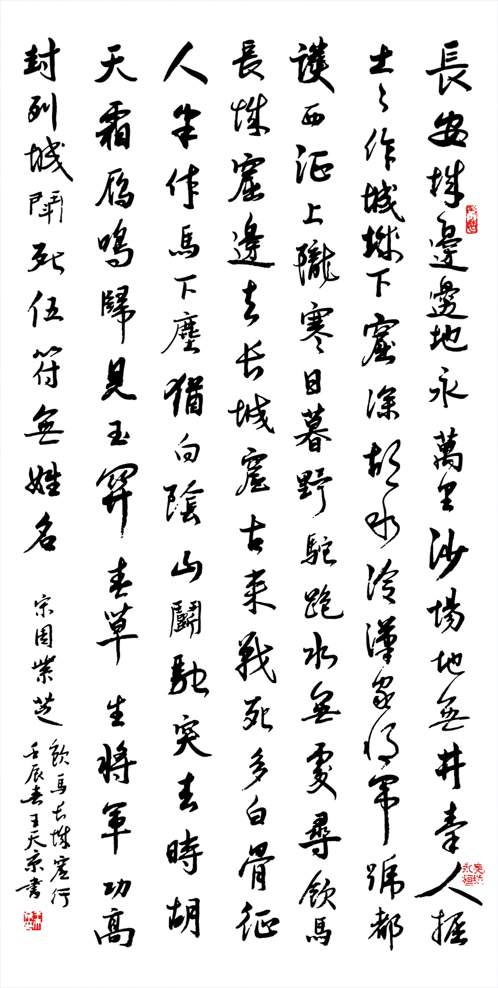 長安城邊邊地永萬里沙場地無井秦人掘
土々作城城下窟深胡水冷漢家將軍號都
護西征上隴寒日暮野駝跑水無處尋飲馬
長城窟邊去长城窟古来戰死多白骨征
人半作馬下塵猶向陰山鬭馳突去時胡
天霜雁鳴歸見玉関春草生將軍功高
封列城鬪死伍符無姓名
宋周紫芝
飲馬长城窟行
壬辰春王天京書